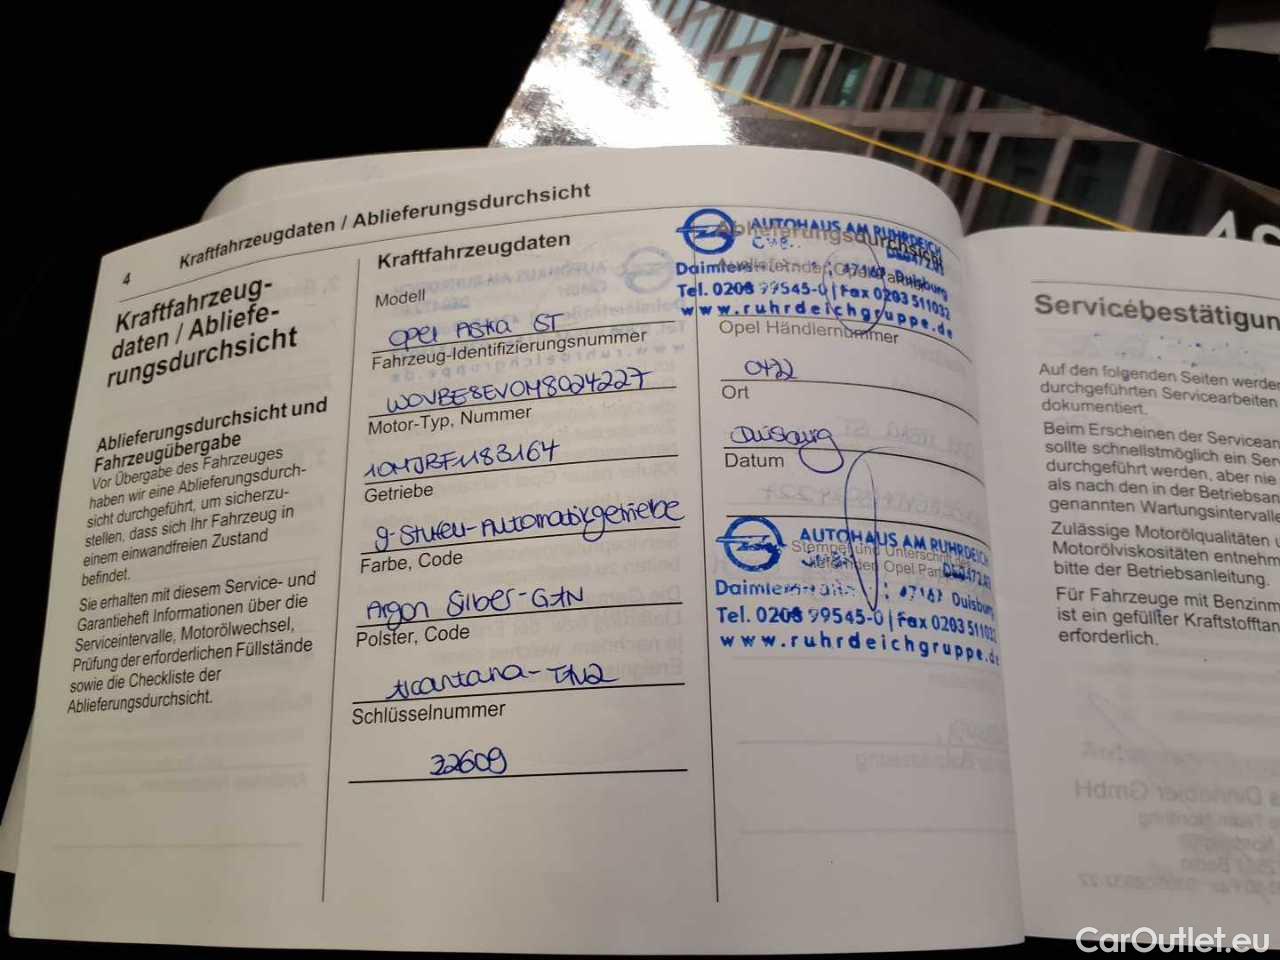 4
Kraftfahrzeugdaten / Ablieferungsdurchsicht
Kraftfahrzeug-
daten / Abliefe-
rungsdurchsicht
Ablieferungsdurchsicht und
Fahrzeugübergabe
Vor Übergabe des Fahrzeuges
haben wir eine Ablieferungsdurch-
sicht durchgeführt, um sicherzu-
stellen, dass sich Ihr Fahrzeug in
einem einwandfreien Zustand
befindet.
Sie erhalten mit diesem Service- und
Garantieheft Informationen über die
Serviceintervalle, Motorölwechsel,
Prüfung der erforderlichen Füllstände
sowie die Checkliste der
Ablieferungsdurchsicht.
Kraftfahrzeugdaten
Modell
Opel Astra ST
Fahrzeug-Identifizierungsnummer
W0VBE8EV0M8024227
Motor-Typ, Nummer
10MJBF1183164
Getriebe
9-Stufen-Automatikgetriebe
Farbe, Code
Argon Silber-GFN
Polster, Code
Alcantara-
Schlüsselnummer
32609
AUTOHAUS AM RUHRDEICH
Ablieferungsdurchsicht
47167 Duisburg
Tel. 0203 99545-0 | Fax 0203 511032
www.ruhrdeichgruppe.de
Opel Händlernummer
0472
Ort
Duisburg
Datum
AUTOHAUS AM RUHRDEICH
Stempel und Unterschrift des
47167 Duisburg
Tel. 0203 99545-0 | Fax 0203 511032
www.ruhrdeichgruppe.de
Servicebestätigun
Auf den folgenden Seiten werde
durchgeführten Servicearbeiten
dokumentiert.
Beim Erscheinen der Servicean
sollte schnellstmöglich ein Ser
durchgeführt werden, aber nie
als nach den in der Betriebsan
genannten Wartungsintervalle
Zulässige Motorölqualitäten u
Motorölviskositäten entnehm
bitte der Betriebsanleitung.
Für Fahrzeuge mit Benzinm
ist ein gefüllter Kraftstofftan
erforderlich.
CarOutlet.eu